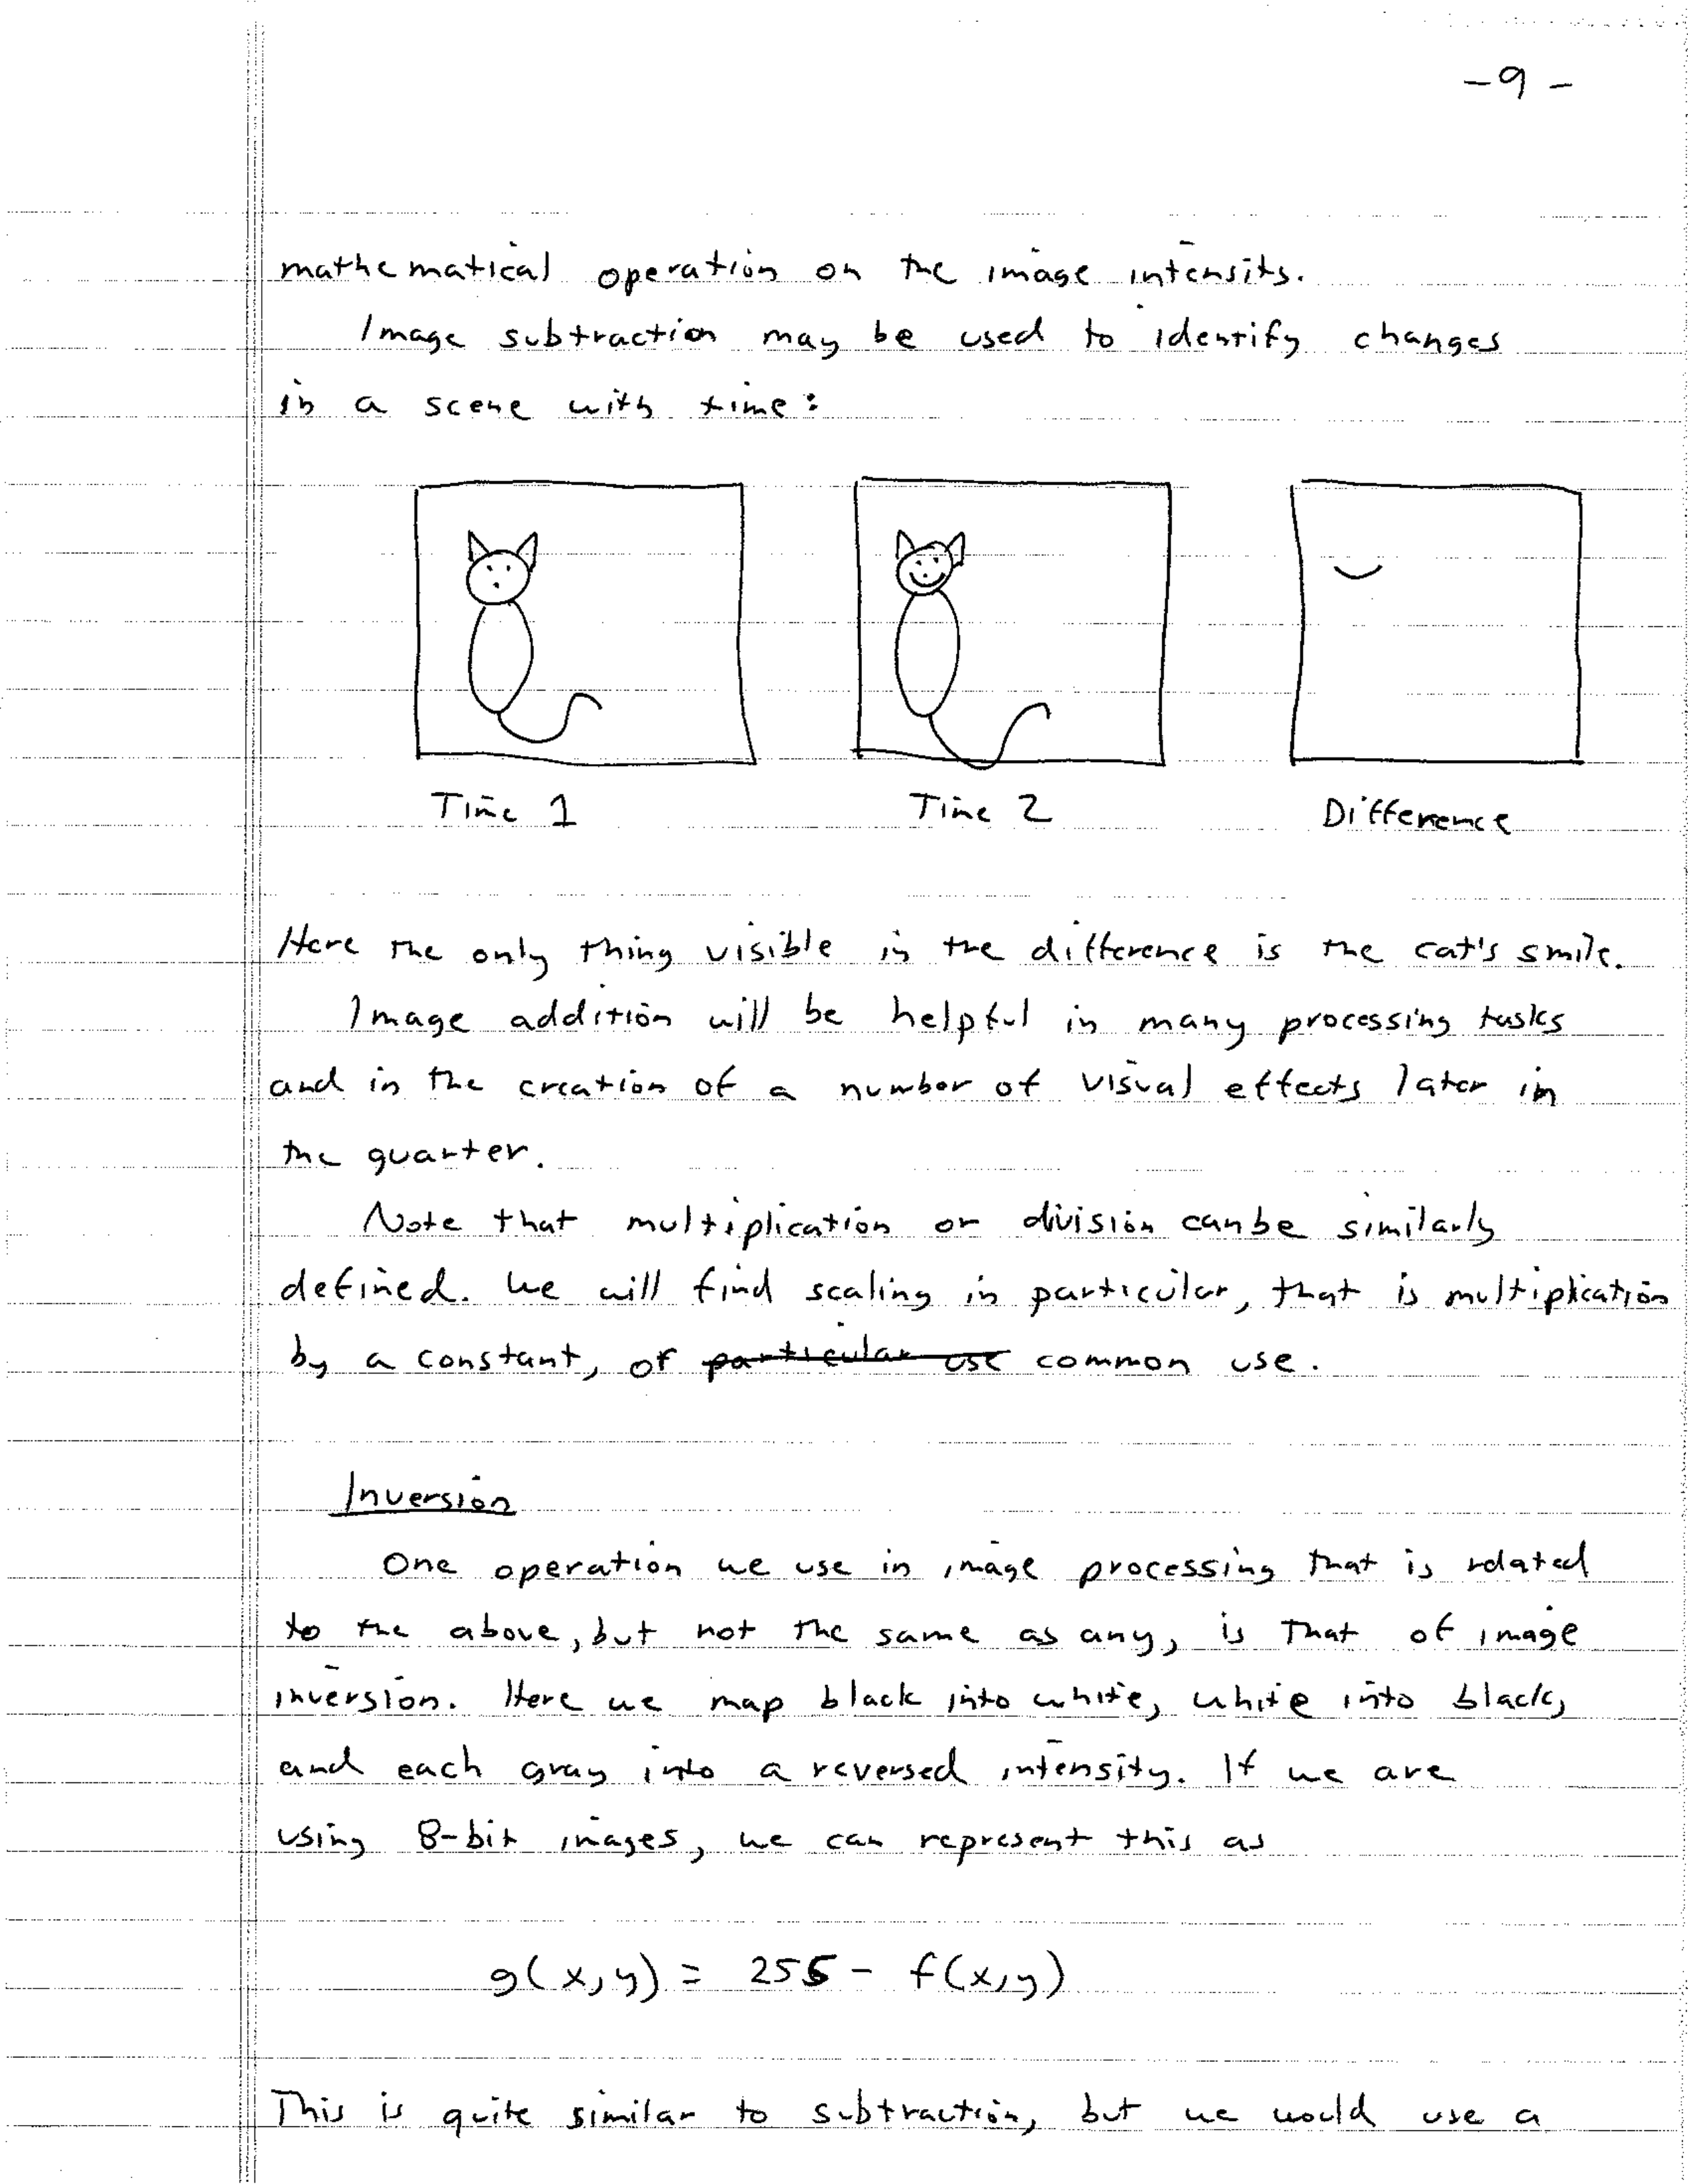 -9-
mathematical operation on the image intensity.
Image subtraction may be used to identify changes
in a scene with time:
Time 1 Time 2 Difference
Here the only thing visible in the difference is the cat's smile.
Image addition will be helpful in many processing tasks
and in the creation of a number of visual effects later in
the quarter.
Note that multiplication or division can be similarly
defined. We will find scaling in particular, that is multiplication
by a constant, of particular use common use.
Inversion
One operation we use in image processing that is related
to the above, but not the same as any, is that of image
inversion. Here we map black into white, white into black,
and each gray into a reversed intensity. If we are
using 8-bit images, we can represent this as
g(x,y) = 255 - f(x,y)
This is quite similar to subtraction, but we would use a